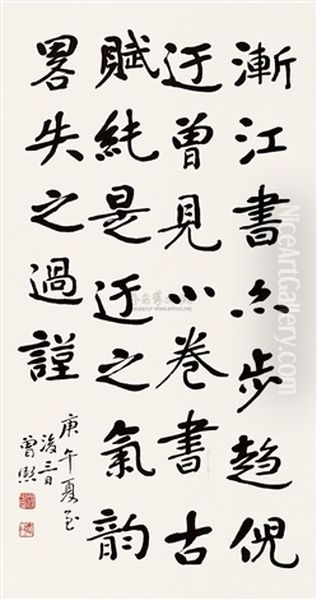 漸江書亦步趋倪
迂曾見小卷書古
賦純是迂之氣韵
畧失之過謹
庚午夏至
後三日
曾熙
NiceArtGallery.com
NiceArtGallery.com